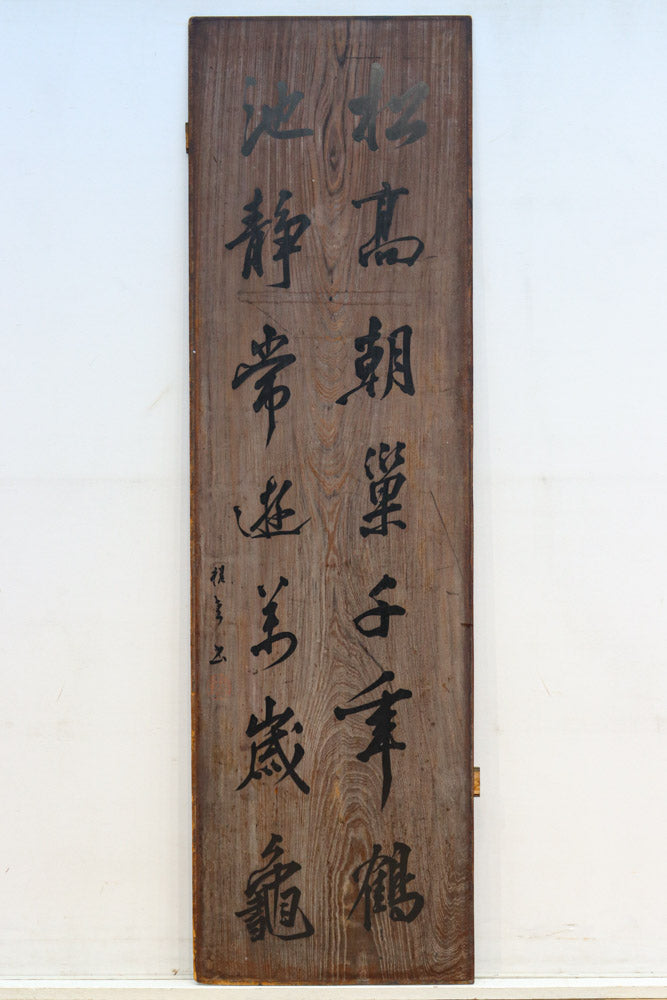 松高朝巢千年鶴
池静常遊万歳龜